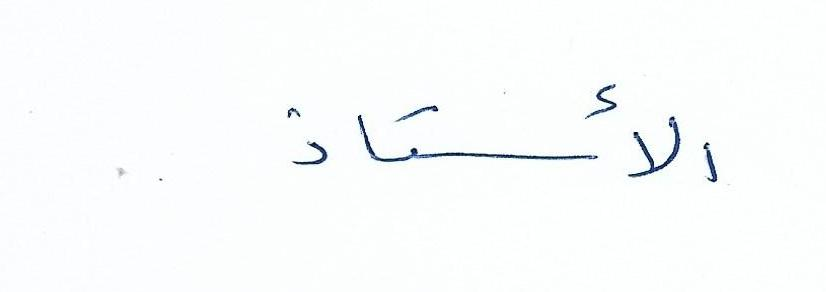 الأستاذ